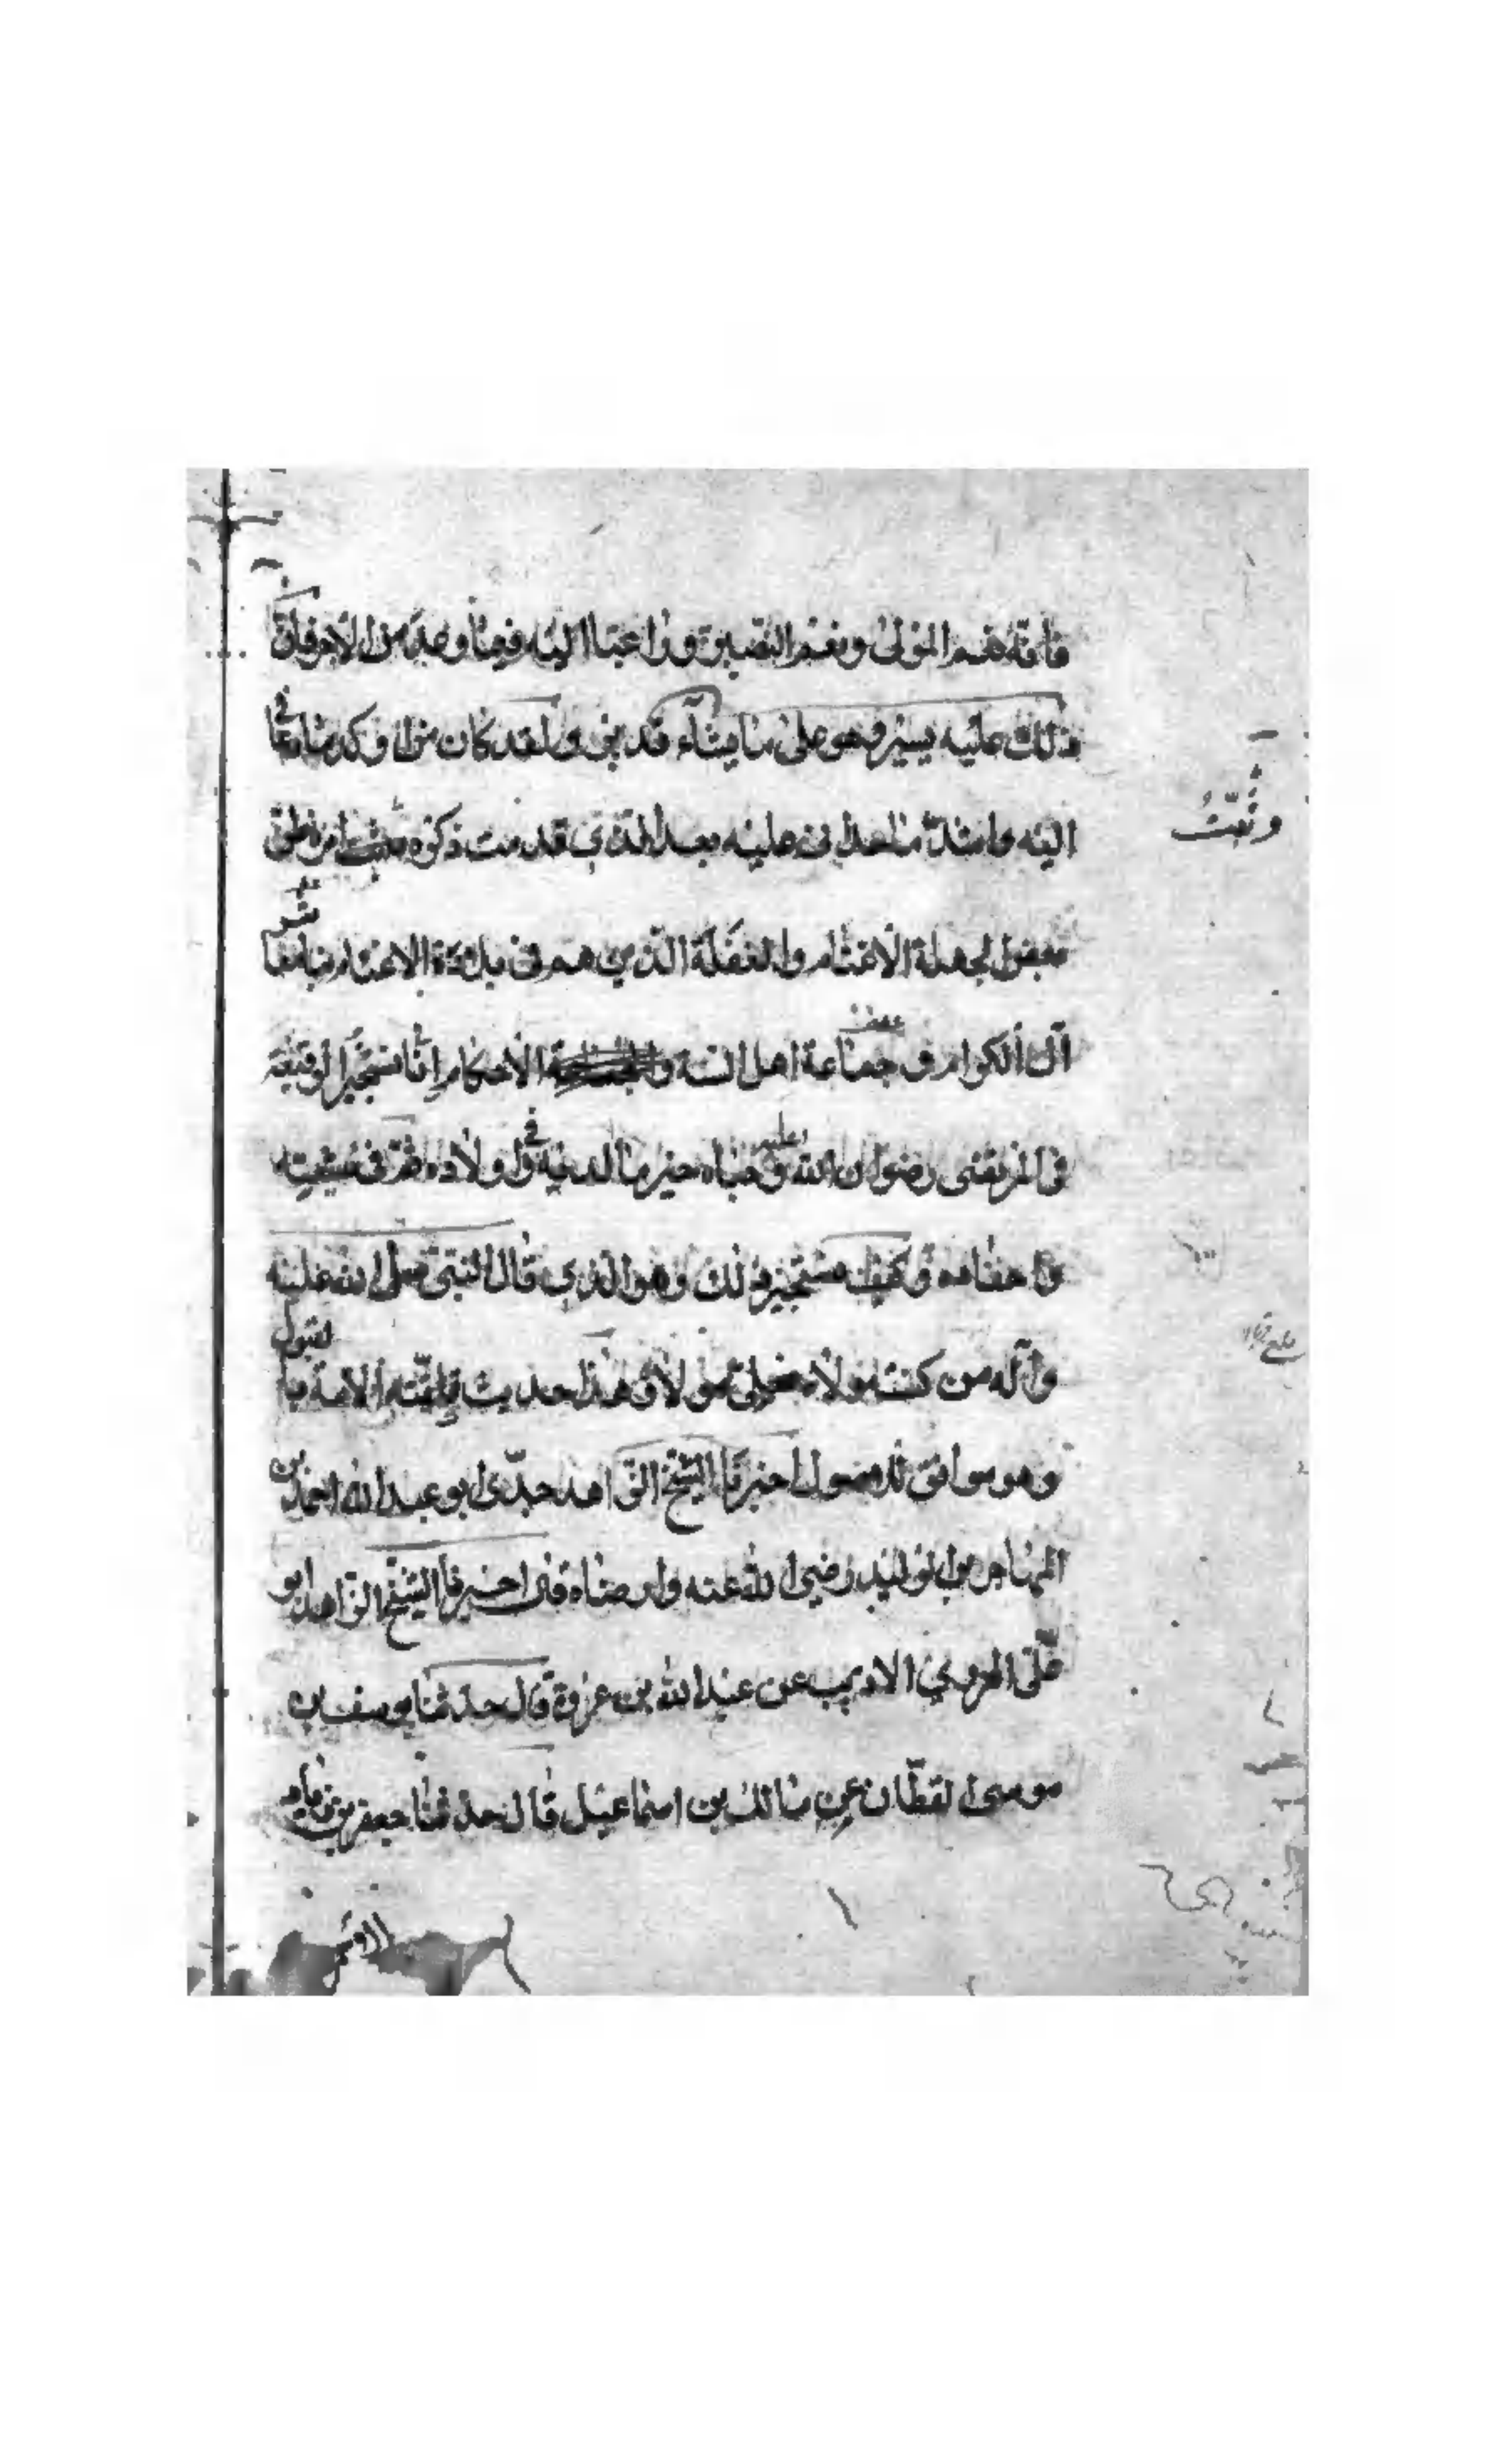 فانه نعم المولى ونعم النصير وراغبا اليه فيما وعد من الاجر فان
ذلك عليه يسير وهو على ما يشاء قدير ولقد كان من اوكد ما دعانى
اليه واشد ما حدانى عليه بعد الذى قدمت ذكره من ظن
وثبت
بعض الجهلة الاغتام والغفلة الذين هم فى بلادة الاغنام بنا معاشر
آل الكرام وجماعة اهل السنة و الاحكام انا نستجيز الوقيعة
فى المرتضى رضوان الله عليه وحباه خير ما لديه وفى اولاده ثم فى شيعته
واحفاده وكيف نستجيز ذلك وهو الذى قال النبى صلى الله عليه
وآله من كنت مولاه فعلى مولاه وهذا حديث تلقته الامة بالقبول
وهو موافق للاصول اخبرنا الشيخ الزاهد جدى ابو عبد الله احمد بن
المهاجر بن الوليد رضى الله عنه وارضاه قال اخبرنا الشيخ الزاهد ابو
على الهروى الاديب عن عبد الله بن عروة قال حدثنا يوسف بن
موسى القطان عن مالك بن اسماعيل قال حدثنا جعفر بن زياد
الاحمر